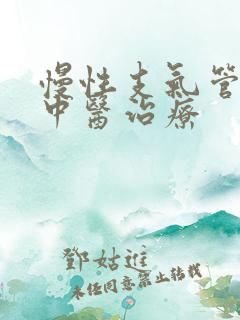 慢性支氣管
中醫治療
鄧姑進
未經同意禁止轉載